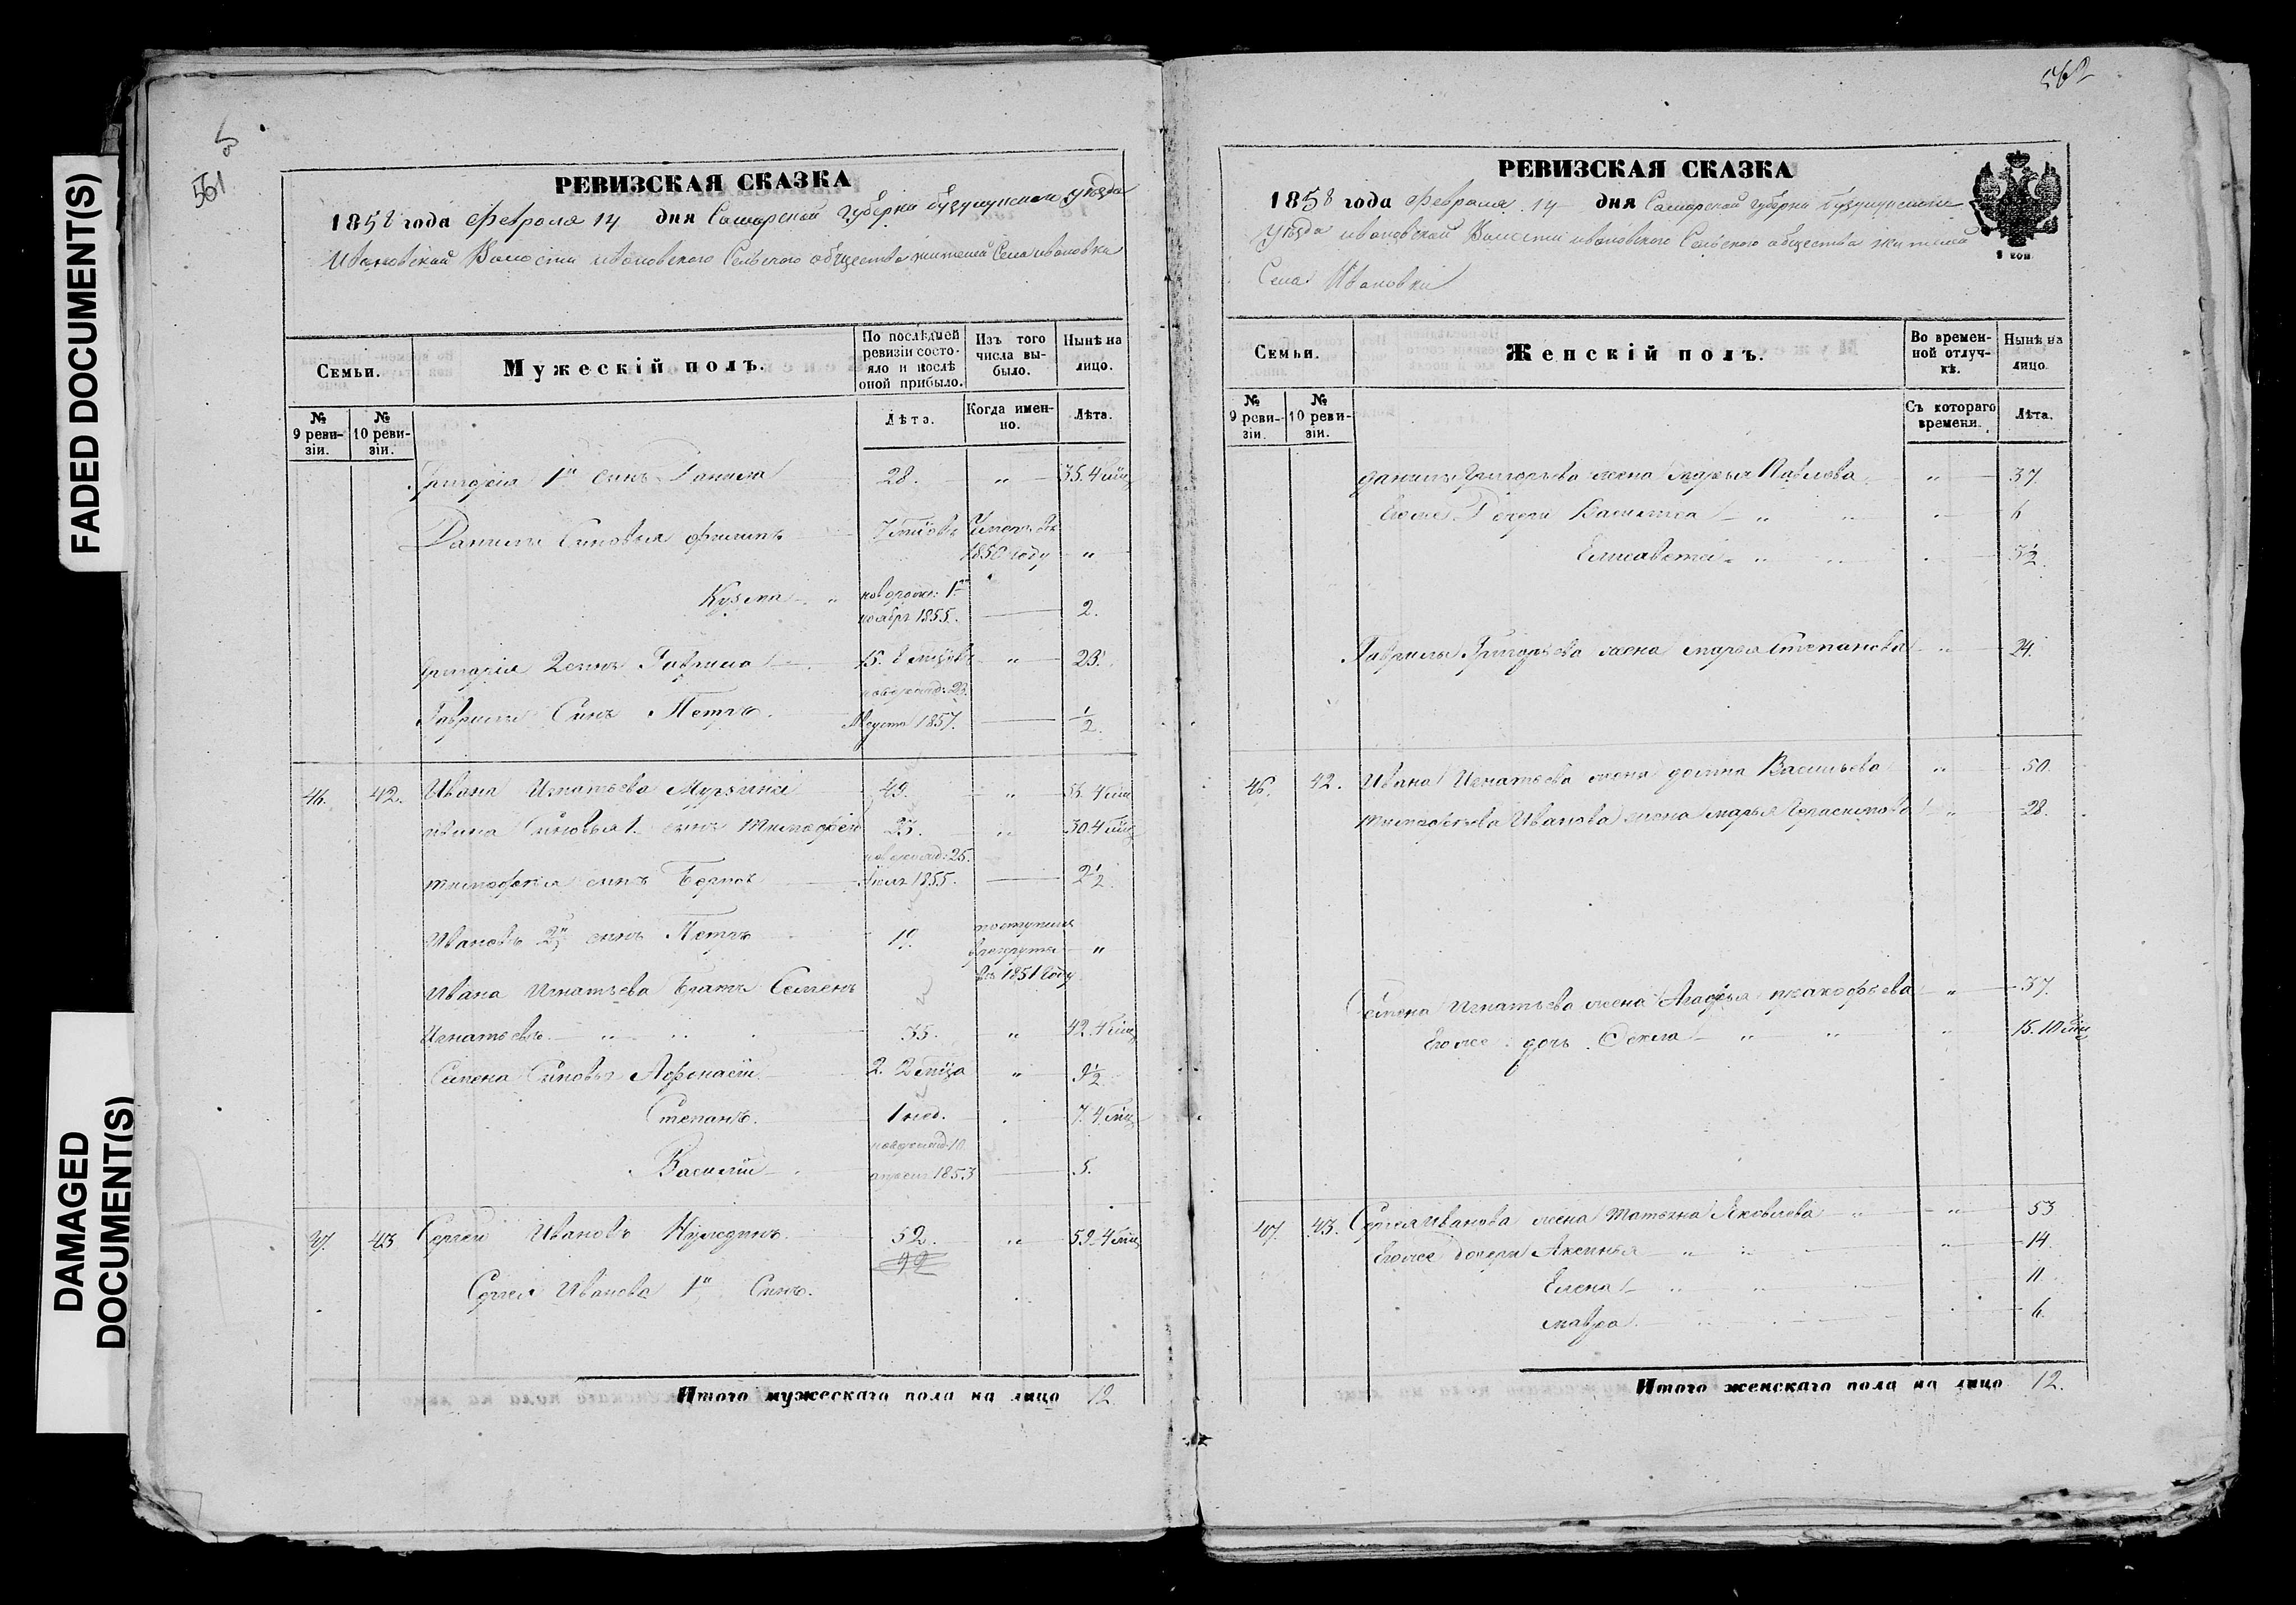 FADED DOCUMENT(S)
DAMAGED
DOCUMENT(S)
561
РЕВИЗСКАЯ СКАЗКА
1858 года Февраля 14 дня Самарской губерни бузулукского уѣзда
Ивановской Волости ивановского Сельского общества жителей Села ивановки
Семьи.
Мужескій полъ.
По послѣдней ревизіи состояло и послѣ оной прибыло.
Изъ того числа выбыло.
Нынѣ на лицо.
№ 9 ревизіи.
№ 10 ревизіи.
Лѣта.
Когда именно.
Лѣта.
Григорія 1й сынъ Данила 28. „ 35. 4 мѣц
Данилы Сыновья филипъ 7 мѣсовъ Умеръ въ
1850 году „
Кузма „ новорож: 1го
ноября 1855. 2.
Григорія 2 сынъ Гаврила 15. 8 мѣсовъ „ 23.
новорожд: 23.
Гаврилы Сынъ Петръ. Августа 1857. 1/2.
46. 42. Ивана Игнатьева 49. „ 4 мѣц
Ивана Сыновья 1. сынъ Тимофей 23. „ 30. 4 мѣц
новорожд: 25.
тимофея сынъ Іюля 1855. 2 1/2.
Ивановъ 2й сынъ Петръ 19. поступилъ
в рекруты „
въ 1851 году
Ивана Игнатьева Братъ Семенъ
Игнатьевъ 35. „ 42. 4 мѣц
Семена Сыновья Афонасій 2. 2 мѣца „ 9 1/2
Степанъ. 1 нед. 7. 4 мѣц
новорожд: 10
Василій апреля 1853 5.
47. 43 Сергей Ивановъ 52. „ 59. 4 мѣц
Сергея Иванова 1й Сынъ.
Итого мужескаго пола на лицо 12.
562
РЕВИЗСКАЯ СКАЗКА
1858 года Февраля 14 дня Самарской губерни бузулукского
уѣзда ивановской Волости ивановского Сельского общества жителей
Села Ивановки
Семьи.
Женскій полъ.
Во временной отлучкѣ.
Нынѣ на лицо.
№ 9 ревизіи.
№ 10 ревизіи.
Съ котораго времени.
Лѣта.
данилы Григорьева жена марья Павлова „ 37.
Егоже Дочери „ 6
Елисавета „ 3 1/2.
Гаврилы Григорьева жена марья степанова „ 24.
46. 42. Ивана Игнатьева жена домна Васильева „ 50.
тимофеева Иванова жена марья Герасимова „ 28.
Семена Игнатьева жена Агафья прокофьева „ 37.
Егоже дочь Фекла „ 15. 10 мѣц
47. 43. Сергея иванова жена татьяна Яковлева „ 53
Егоже дочери Аксинья „ 14.
Елена 11.
мавра 6.
Итого женскаго пола на лицо 12.